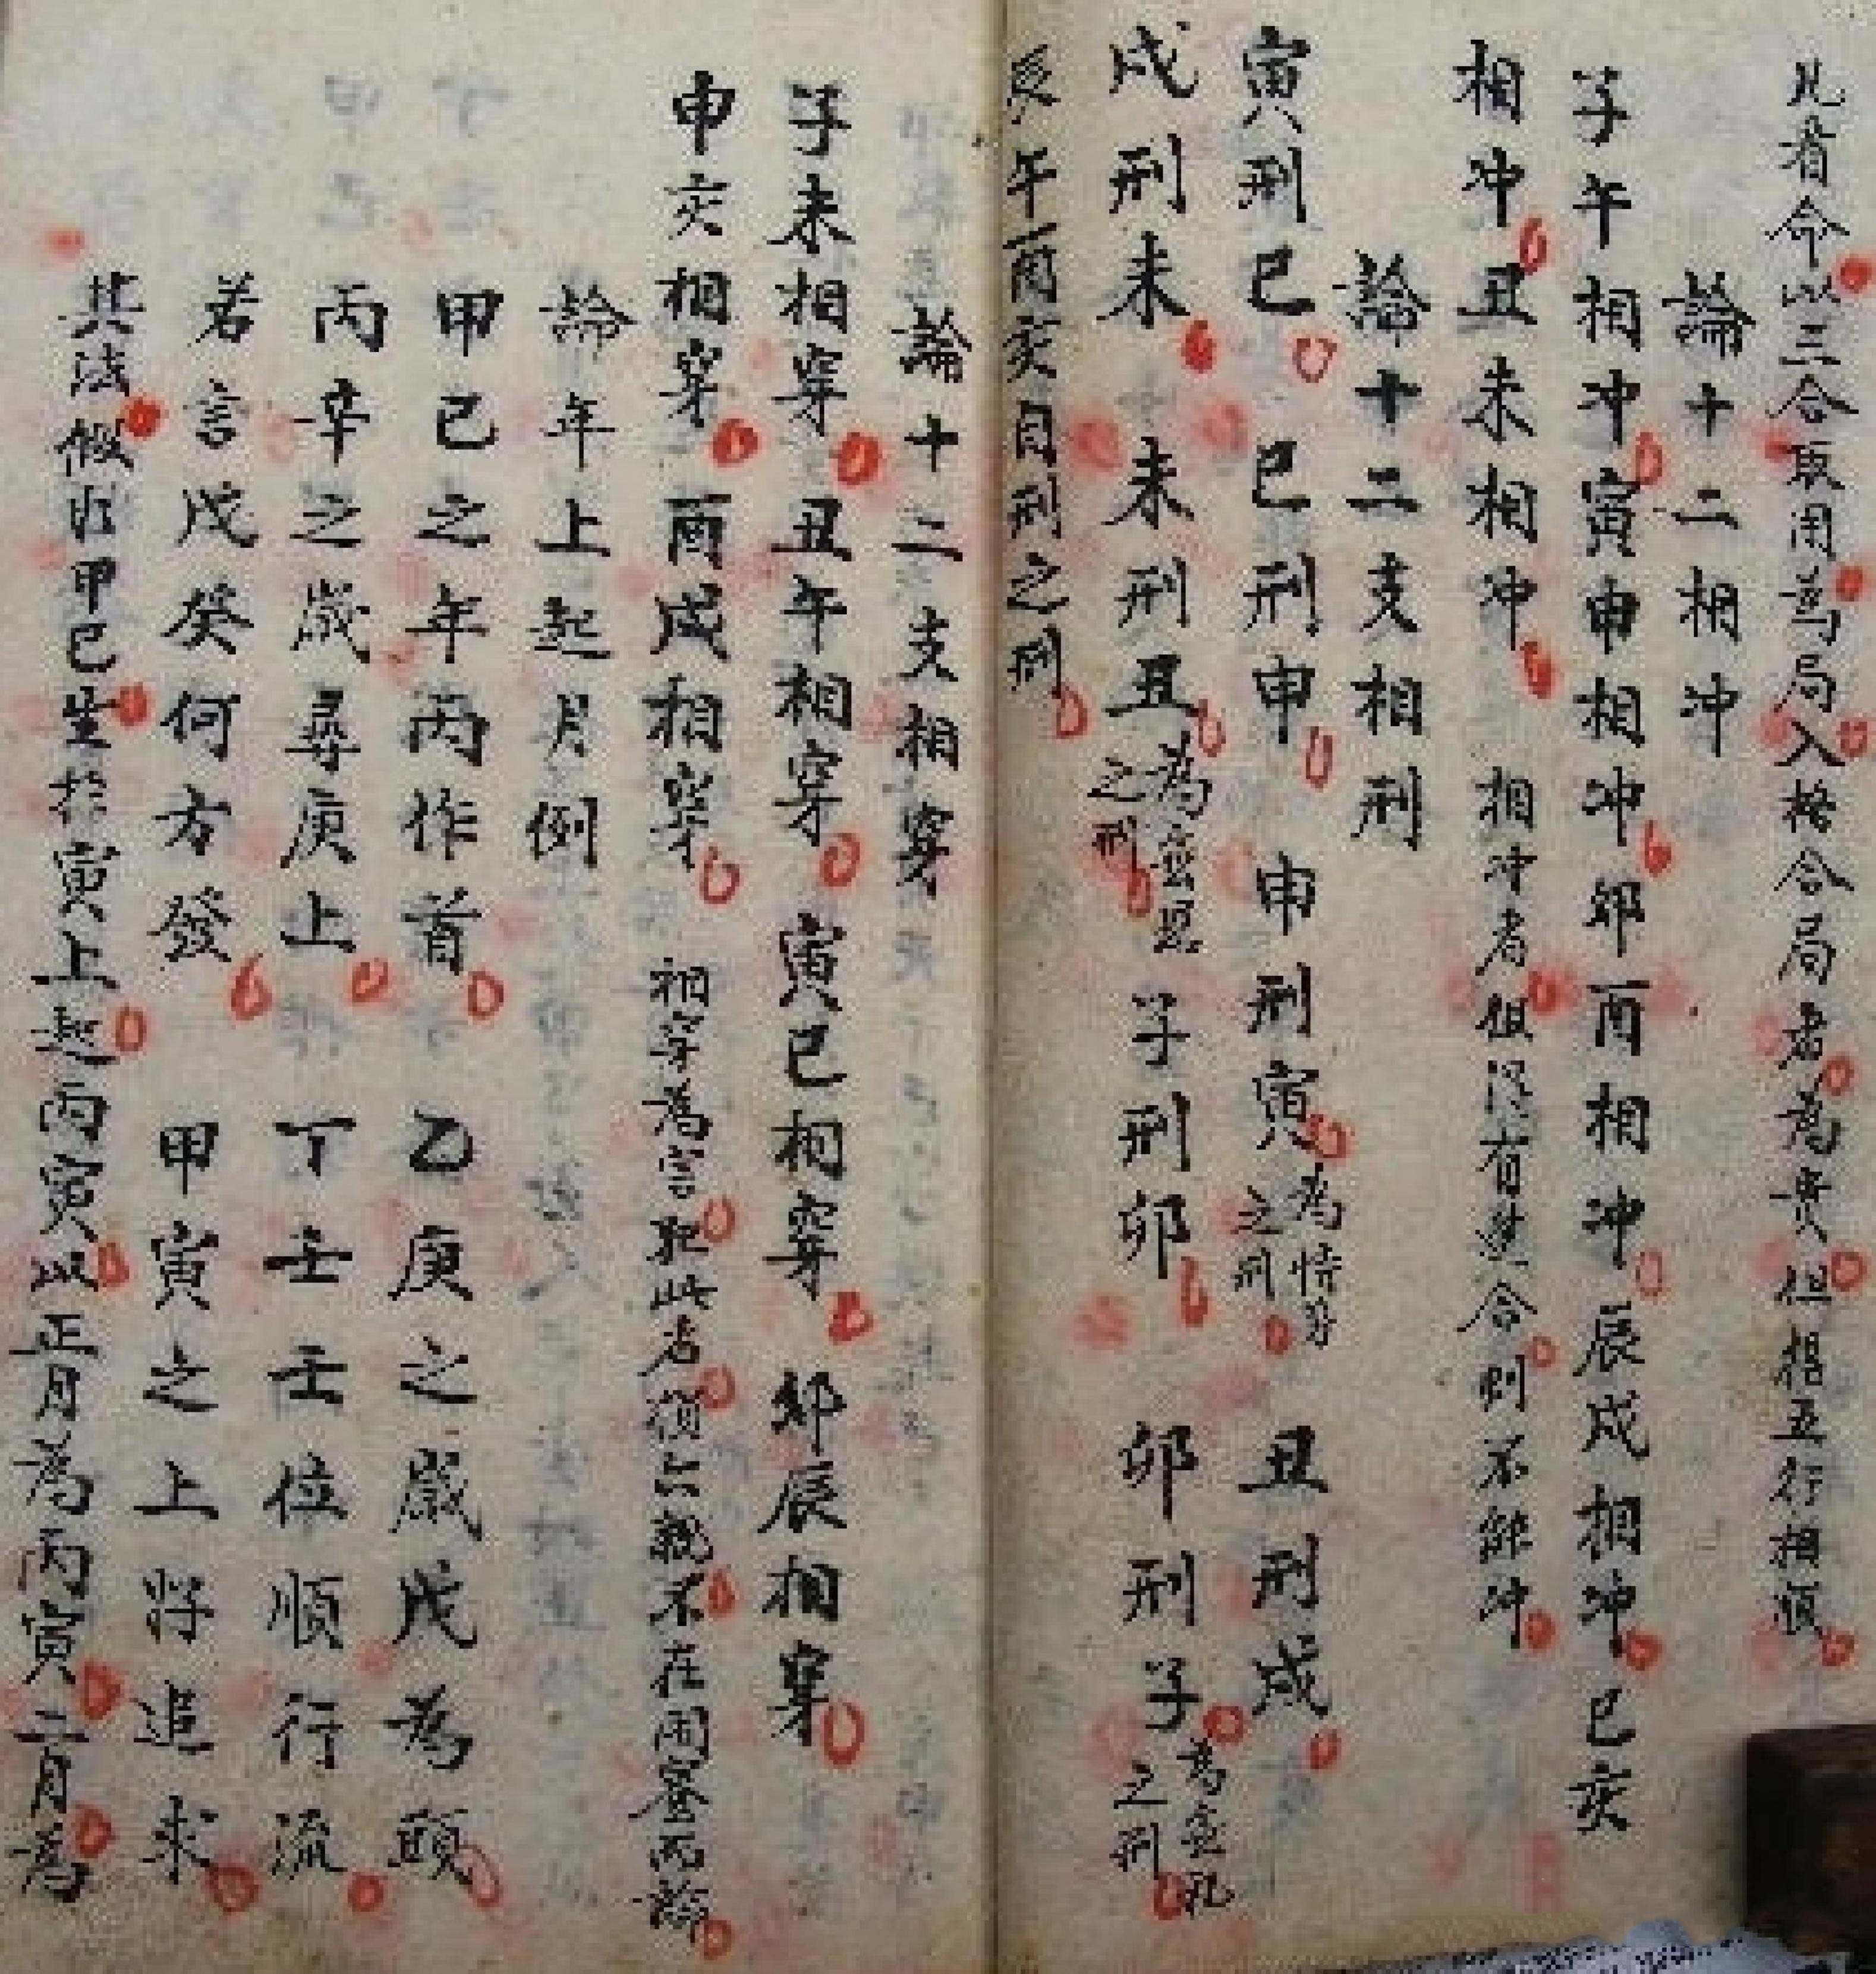 凡看命以三合取用為局入格合局者為貴但招五行相順
論十二相冲
子午相冲寅申相冲卯酉相冲辰戌相冲巳亥
相冲丑未相冲 相冲者但有合則不能冲
論十二支相刑
寅刑巳 巳刑申 申刑寅為恃勢之刑 丑刑戌
戌刑未 未刑丑為無恩之刑 子刑卯 卯刑子為無礼之刑
辰午酉亥自刑之刑
論十二支相穿
子未相穿 丑午相穿 寅巳相穿 卯辰相穿
申亥相穿 酉戌相穿 相穿為害犯此者六親不在論
論年上起月例
甲己之年丙作首 乙庚之歲戊為頭
丙辛之歲尋庚上 丁壬壬位順行流
若言戊癸何方發 甲寅之上将追求
其法假如甲己生於寅上起丙寅以正月為丙寅二月為